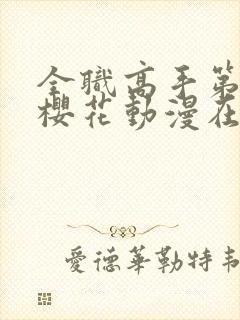 全職高手第
櫻花動漫在
愛德華勒特韋